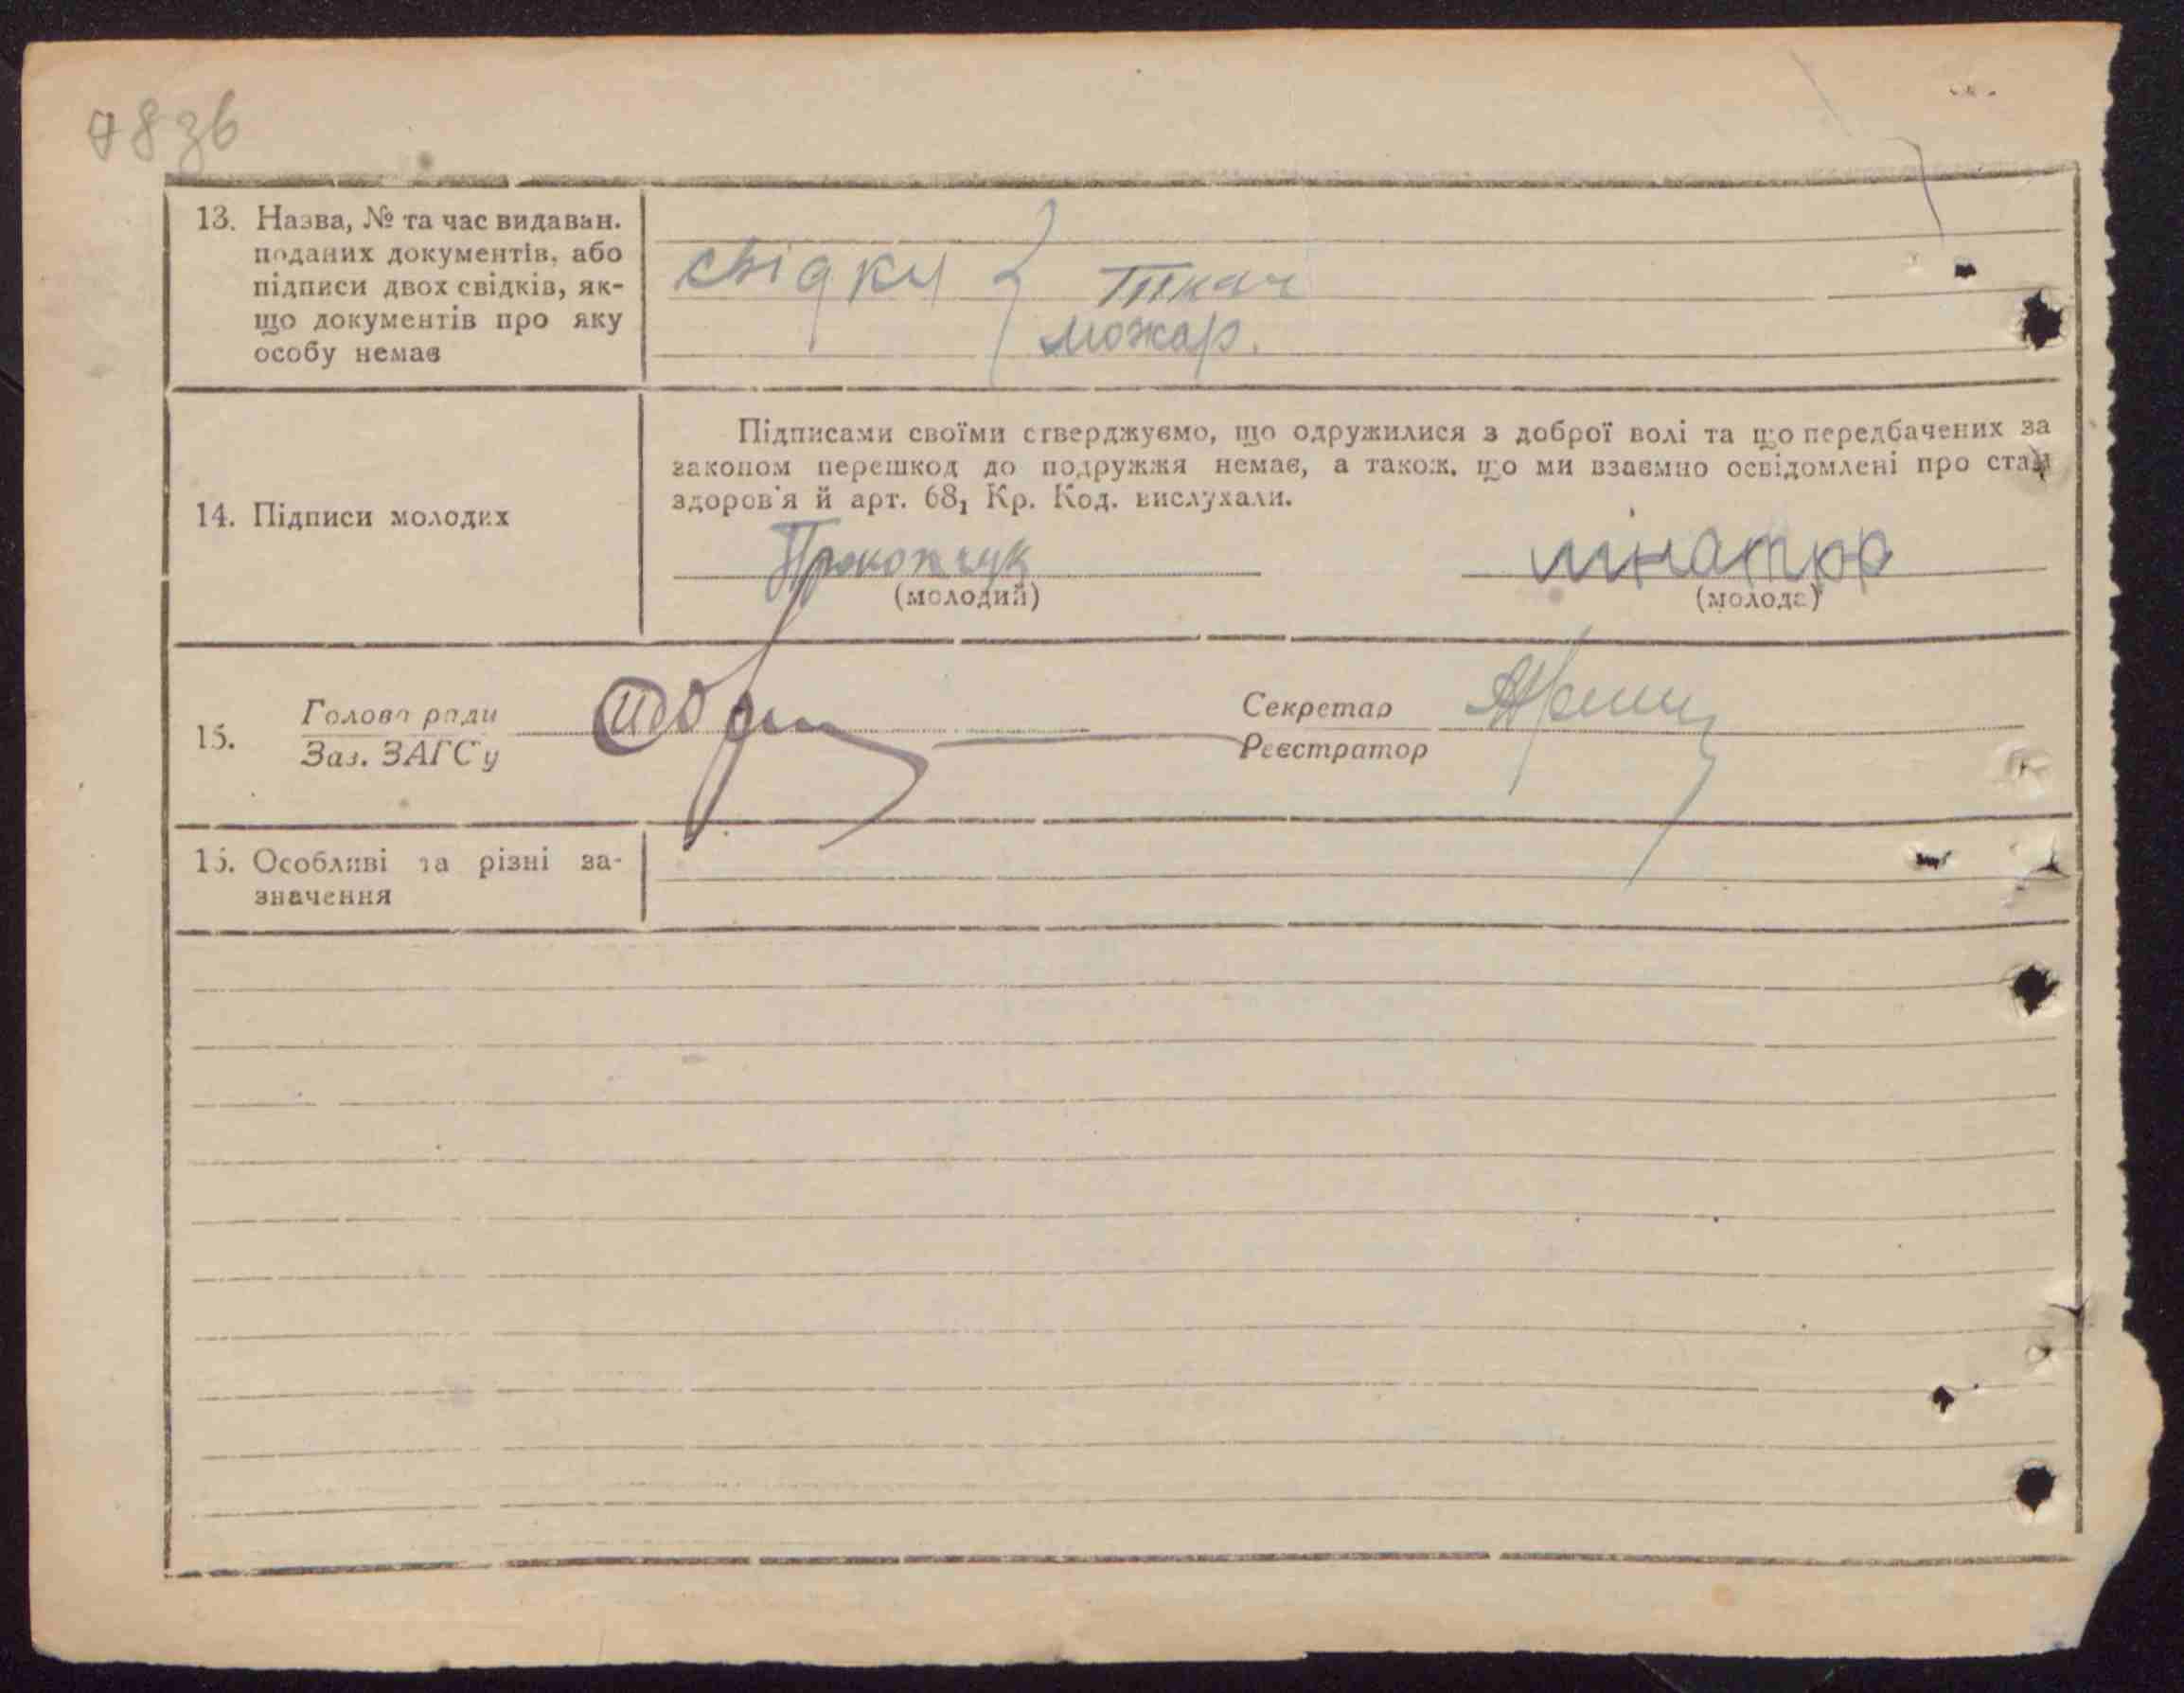 78зв
13. Назва, № та час видаван. поданих документів, або підписи двох свідків, як-що документів про яку особу немає
свідки
Ткач
можар.
14. Підписи молодих
Підписами своїми стверджуємо, що одружилися з доброї волі та що передбачених за
законом перешкод до подружжя немає, а також, що ми взаємно освідомлені про стан
здоров'я й арт. 68₁ Кр. Код. вислухали.
Прокопчук
(молодий)
(молода)
15. Голова ради
Заз. ЗАГС'у
Секретар
Реєстратор
16. Особливі та різні за-
значення